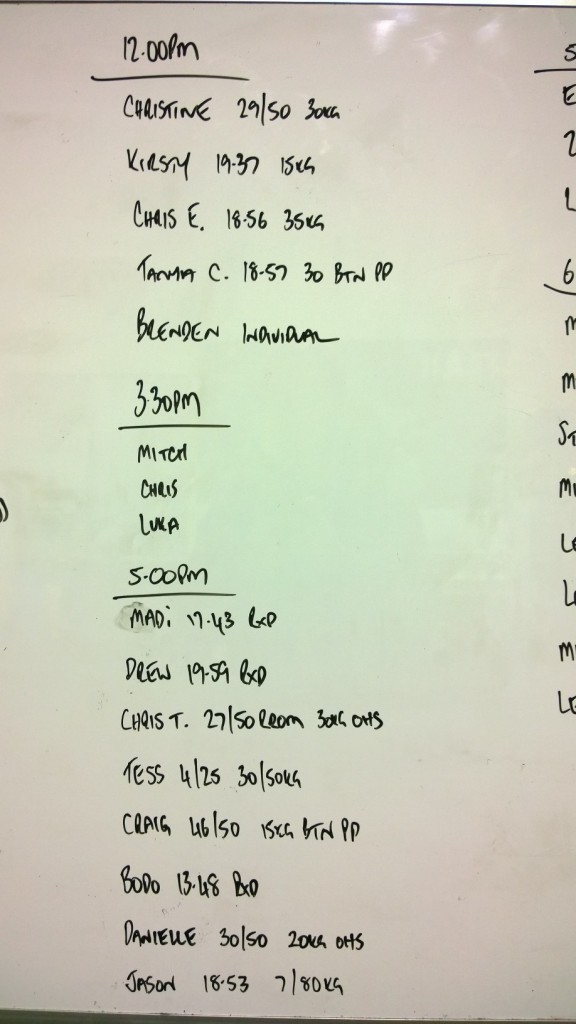 12.00PM
CHRISTINE 29/50 30KG
KIRSTY 19.37 15KG
CHRIS E. 18.56 35KG
C. 18.57 30 BTN PP
BRENDEN INDIVIDUAL
3.30PM
MITCH
CHRIS
LUKA
5.00PM
MADi 17.43 RXD
DREW 19.59 RXD
CHRIS T. 27/50 RROM 30KG OHS
TESS 4/25 30/50KG
CRAIG 46/50 15KG BTN PP
BODO 13.48 RXD
DANIELLE 30/50 20KG OHS
JASON 18.53 7/80KG
5
E
2
L
6
M
M
ST
M
LE
L
M
LE